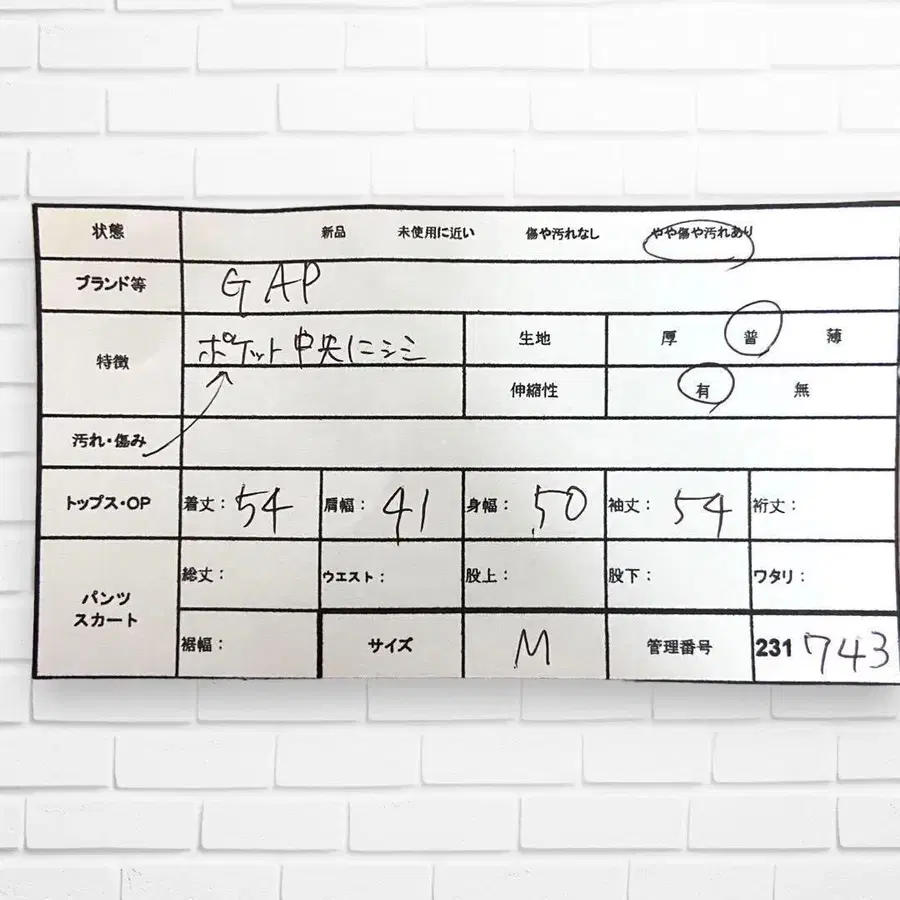 状態 新品 未使用に近い 傷や汚れなし やや傷や汚れあり
ブランド等 GAP
特徴 ポケット中央にシミ 生地 厚 普 薄
伸縮性 有 無
汚れ・傷み
トップス・OP 着丈: 54 肩幅: 41 身幅: 50 袖丈: 54 裄丈:
パンツ スカート 総丈: ウエスト: 股上: 股下: ワタリ:
裾幅: サイズ M 管理番号 231 743